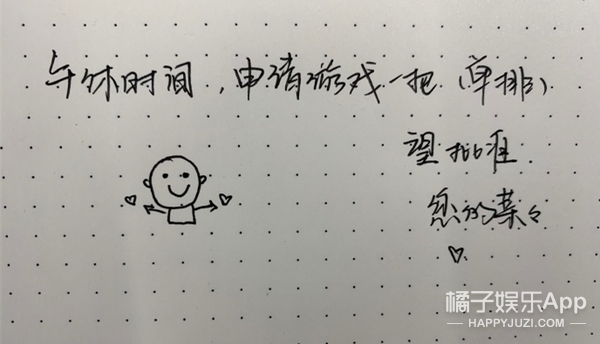 午休时间，申请游戏一把（单排）
望批准
您的菜々
橘子娱乐App
HAPPYJUZI.COM